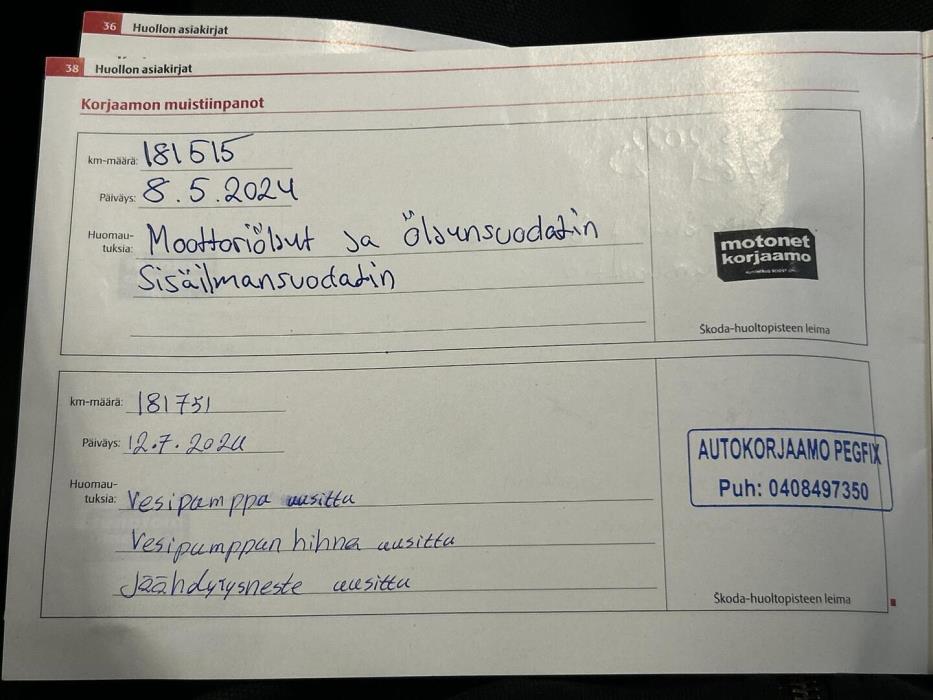 36 Huollon asiakirjat
38 Huollon asiakirjat
Korjaamon muistiinpanot
km-määrä: 181 515
Päiväys: 8.5.2024
Huomau-
tuksia: Moottoriöljyt ja öljynsuodatin
Sisäilmansuodatin
motonet
korjaamo
Škoda-huoltopisteen leima
km-määrä: 181 751
Päiväys: 12.7.2024
Huomau-
tuksia: Vesipumppu uusittu
Vesipumppun hihna uusittu
Jäähdytysneste uusittu
AUTOKORJAAMO PEGFIX
Puh: 0408497350
Škoda-huoltopisteen leima